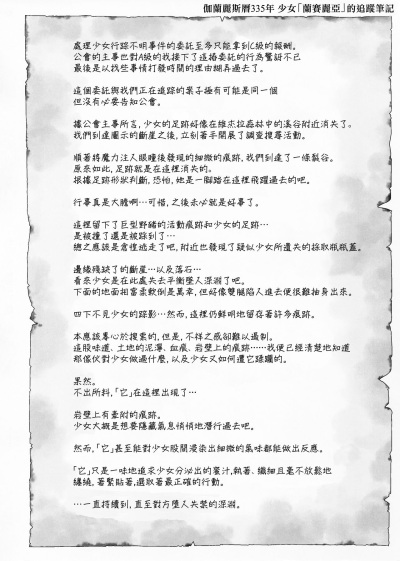 伽蘭麗斯曆335年 少女「蘭賽麗亞」的追蹤筆記
處理少女行蹤不明事件的委託至多只能拿到C級的報酬。
公會的主事也對A級的我接下了這樁委託的行為驚訝不已
最後是以找些事情打發時間的理由糊弄過去了。
這個委託與我們正在追蹤的案子極有可能是同一個
但沒有必要告知公會。
據公會主事所言，少女的足跡好像在維杰拉森林中的溪谷附近消失了。
我們到達圖示的斷崖之後，立刻著手開展了調查搜尋活動。
順著將魔力注入眼瞳後發現的細微的痕跡，我們到達了一條裂谷。
原來如此，足跡就是在這裡消失的。
根據足跡形狀判斷，恐怕，她是一腳踏在這裡飛躍過去的吧。
行事真是大膽啊…可惜，之後未必就是好事了。
這裡留下了巨型野豬的活動痕跡和少女的足跡…
是被撞了還是被踩到了…
總之應該是倉惶逃走了吧，附近也發現了疑似少女所遺失的採取瓶瓶蓋。
邊緣殘缺了的斷崖…以及落石…
看來少女是在此處失去平衡墜入深淵了吧。
下面的地面相當柔軟倒是萬幸，但好像雙腿陷入進去便很難抽身出來。
四下不見少女的踪影…然而，這裡仍鮮明地留存著許多痕跡。
本應該專心於搜索的，但是，不祥之感卻難以遏制。
這股味道、土地的泥濘、血痕、岩壁上的痕跡……我便已經清楚地知道
那傢伙對少女做過什麼，以及少女又如何遭它蹂躪的。
果然。
不出所料，「它」在這裡出現了…
岩壁上有牽附的痕跡。
少女大概是想要隱藏氣息悄悄地潛行過去吧。
然而，「它」甚至能對少女股間浸染出細微的氣味都能做出反應。
「它」只是一味地追求少女分泌出的蜜汁，執著、纖細且毫不放鬆地
纏繞，著緊貼著，選取著最正確的行動。
…一直持續到，直至對方墜入失禁的深淵。